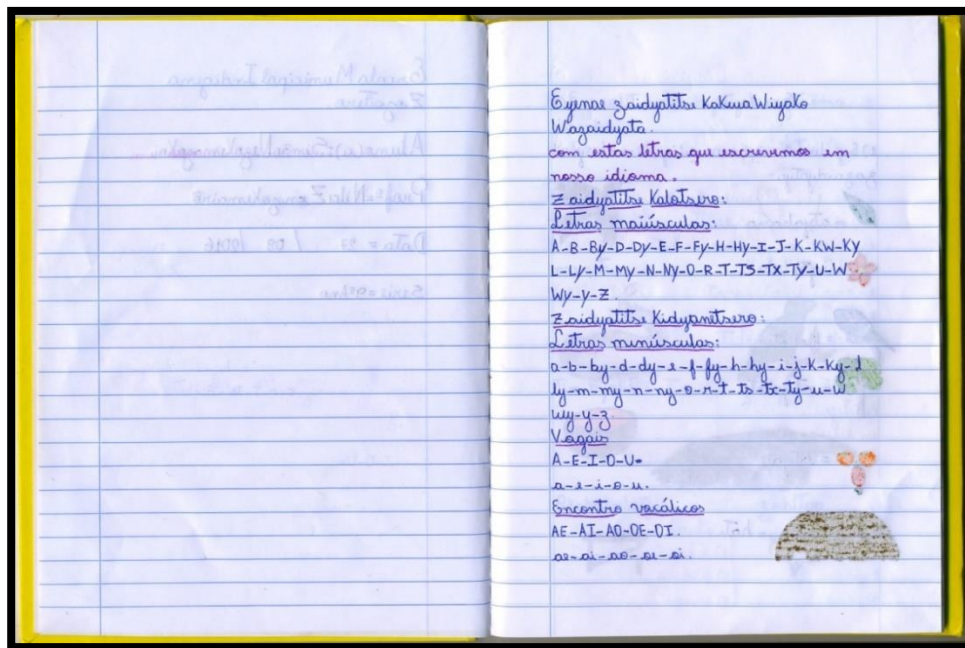 Eyenae zaidyatitse Kakwa Wiyako
Wazaidyata.
com estas letras que escrevemos em
nosso idioma.
Zaidyatitse Kalotsero:
Letras maiúsculas:
A-B-By-D-Dy-E-F-Fy-H-Hy-I-J-K-KW-Ky
L-Ly-M-My-N-Ny-O-R-T-TS-TX-Ty-U-W
Wy-Y-Z.
Zaidyatitse Kidyanetsero:
Letras minúsculas:
a-b-by-d-dy-e-f-fy-h-hy-i-j-k-ky-l
ly-m-my-n-ny-o-r-t-ts-tx-ty-u-w
wy-y-z.
Vogais
A-E-I-O-U-
a-e-i-o-u.
Encontro vocálicos
AE-AI-AO-OE-OI.
ae-ai-ao-oe-oi.